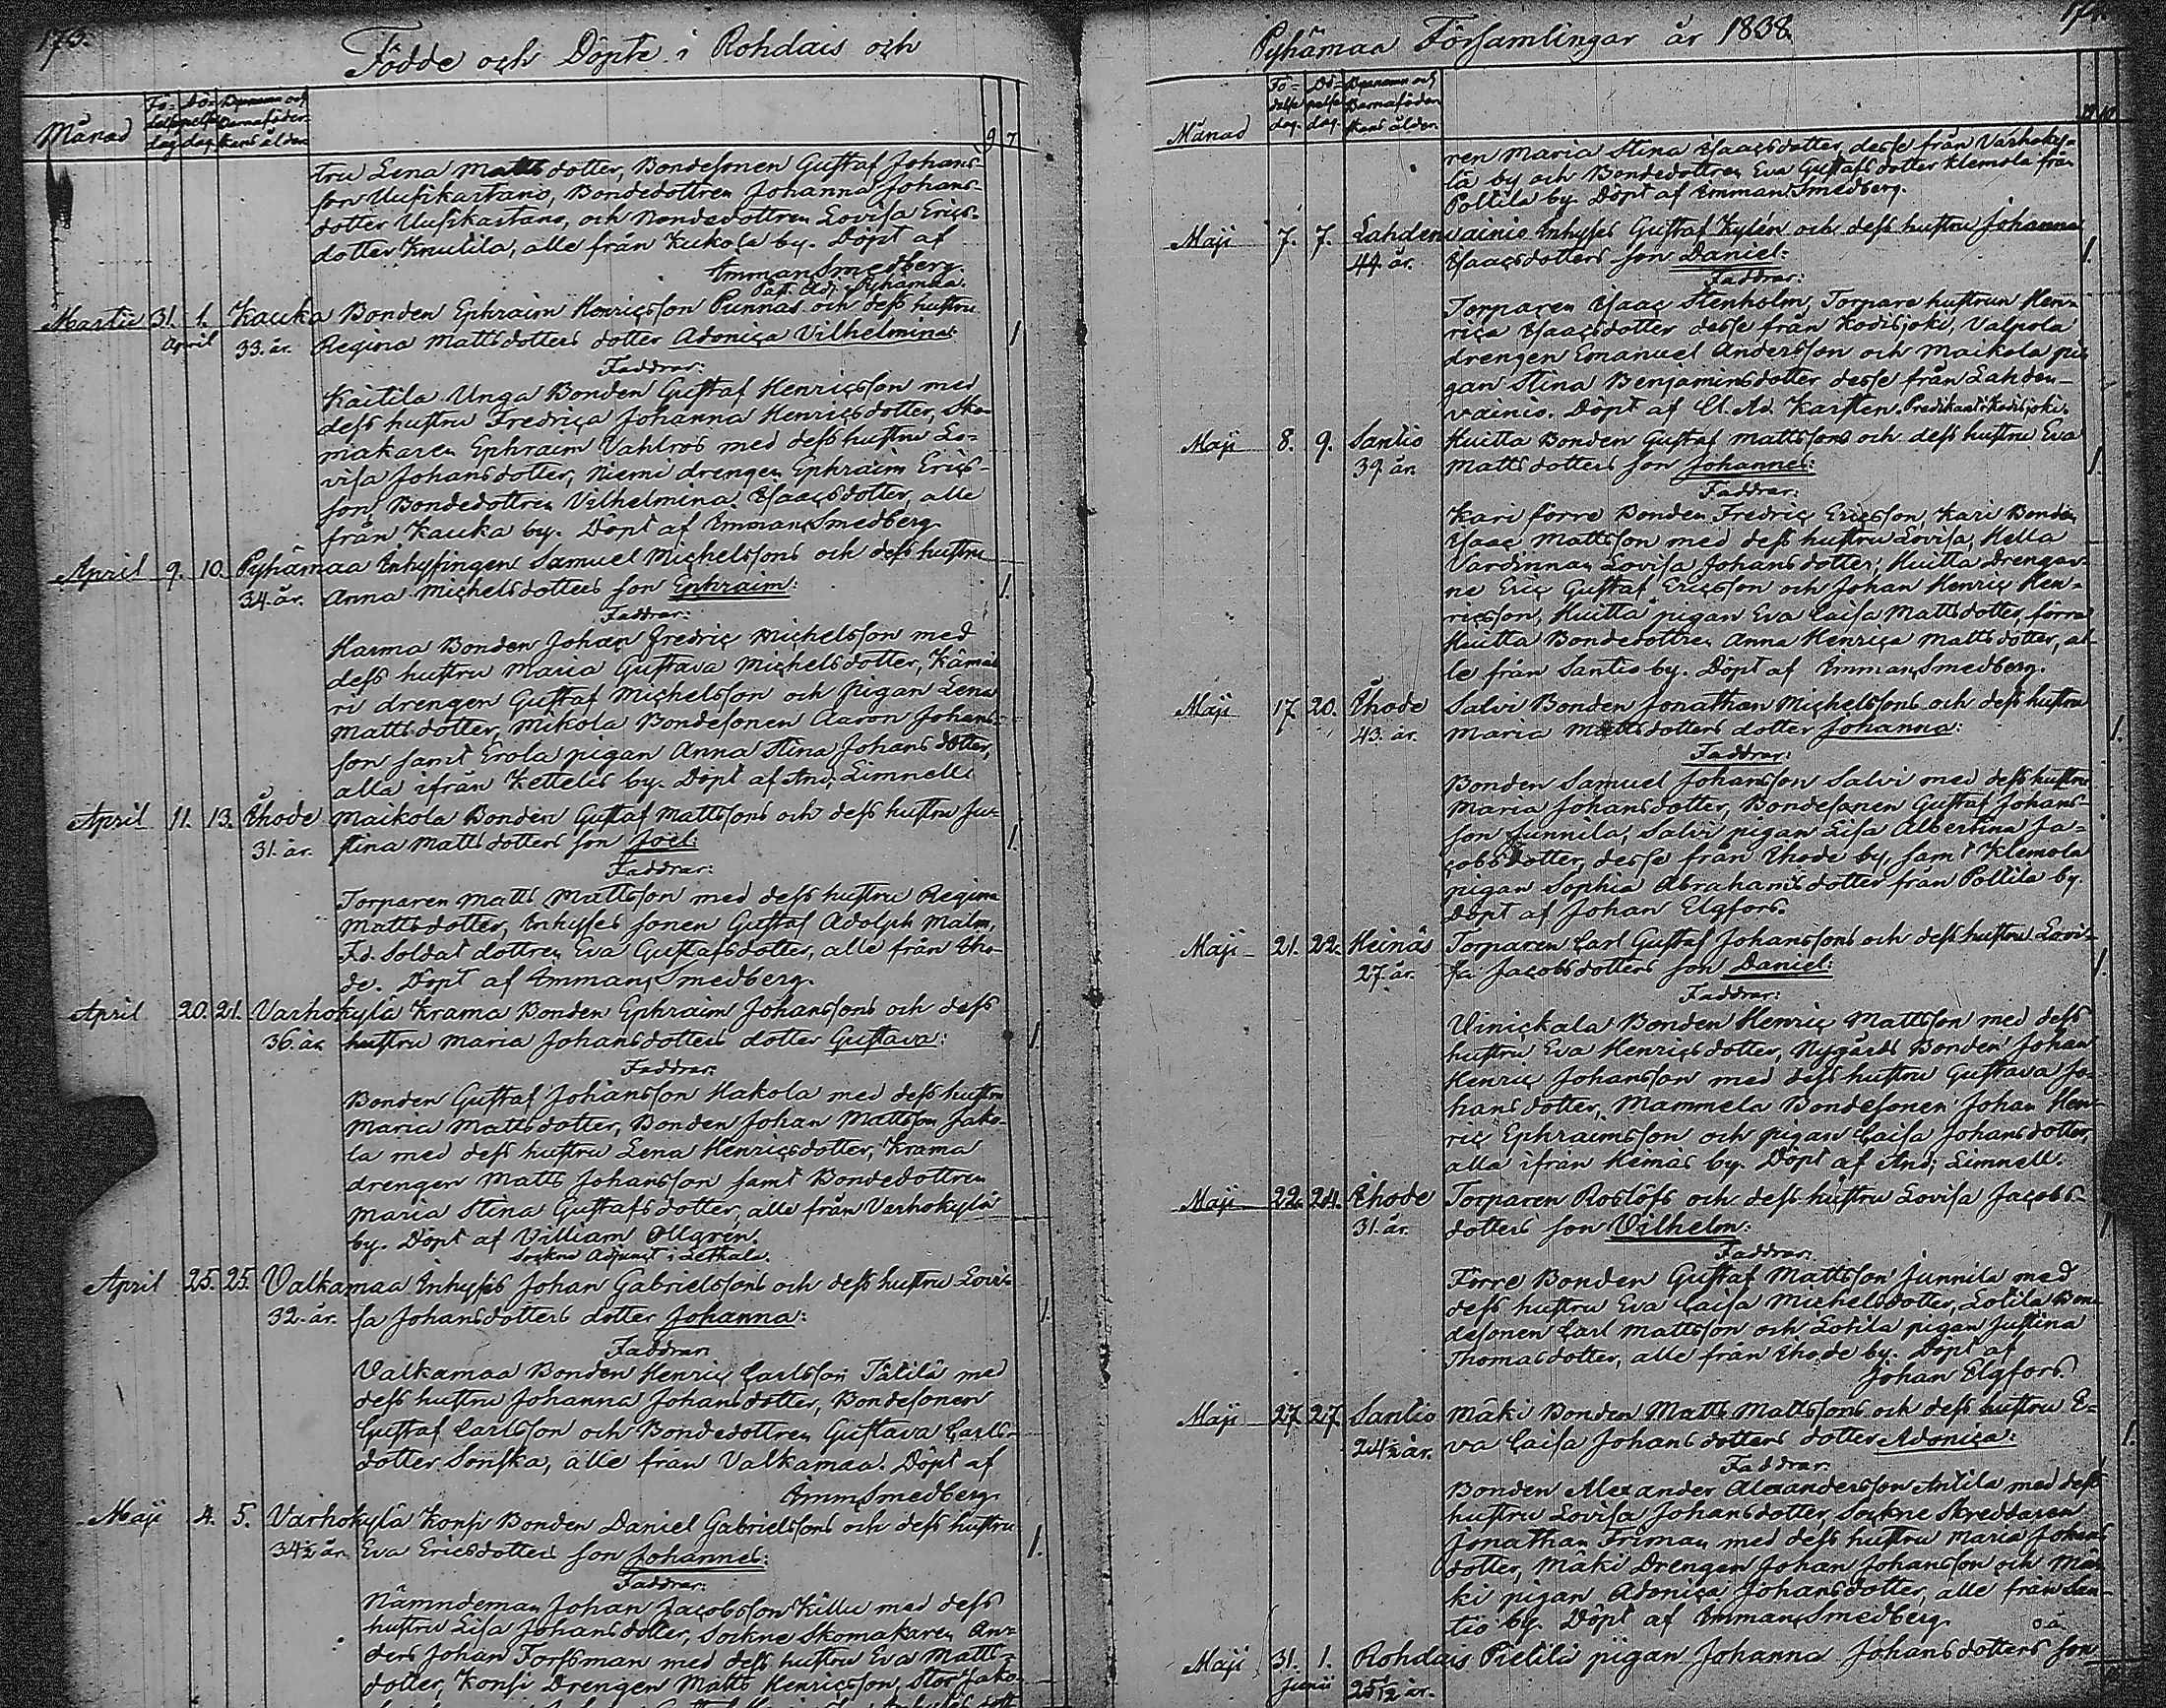 173.
Födde och Döpte i Rohdais och
Månad
Fö-
delse
dag
Dö-
pelse
dag
Byanamn och
Barnaföder-
skans ålder
9 7
tru Lena Mattsdotter, Bondesonen Gustaf Johans-
son Uusikartano, Bondedottren Johanna Johans-
dotter Uusikartano, och Bondedottren Lovisa Erics-
dotter Knutila, alle från Kukola by. Döpt af
Emman. Smedberg.
Past. Adj: Pyhämaa.
Martii 31. 1. Kauka Bonden Ephraim Henricsson Punnas och dess hustru
April 33. år. Regina Mattsdotters dotter Adonica Vilhelmina: 1
Faddrar:
Kaitila Unga Bonden Gustaf Henricsson med
dess hustru Fredrica Johanna Henricsdotter, Sko-
makaren Ephraim Vahlros med dess hustru Lo-
visa Johansdotter, Niemi drengen Ephraim Erics-
son, Bondedottren Vilhelmina Isaacsdotter, alle
från Kauka by. Döpt af Emman. Smedberg.
April 9. 10. Pyhämaa Inhysingen Samuel Michelssons och dess hustru
34. år. Anna Michelsdotters son Ephraim: 1.
Faddrar:
Harma Bonden Johan Fredric Michelsson med
dess hustru Maria Gustava Michelsdotter, Kämä
ri drengen Gustaf Michelsson och pigan Lena
Mattsdotter, Mikola Bondesonen Aaron Johans-
son samt Erola pigan Anna Stina Johansdotter,
alla ifrån Kettelis by. Döpt af And: Limnell
April 11. 13. Ihode Maikola Bonden Gustaf Mattssons och dess hustru Ju-
31. år. stina Mattsdotters son Joel: 1.
Faddrar:
Torparen Matts Mattsson med dess hustru Regina
Mattsdotter, Inhyses sonen Gustaf Adolph Malm,
Fd. Soldat dottren Eva Gustafsdotter, alle från Iho-
de. Döpt af Emman. Smedberg.
April 20. 21. Varhokylä Krama Bonden Ephraim Johanssons och dess
36. år. hustru Maria Johansdotters dotter Gustava: 1.
Faddrar:
Bonden Gustaf Johansson Hakola med dess hustru
Maria Mattsdotter, Bonden Johan Mattsson Jako-
la med dess hustru Lena Henricsdotter, Krama
drengen Matts Johansson samt Bondedottren
Maria Stina Gustafsdotter, alle från Varhokylä
by. Döpt af Villiam Ollgrén.
Sockne Adjunct i Lethala.
April 25. 25. Valkamaa Inhyses Johan Gabrielssons och dess hustru Lovi-
32. år. sa Johansdotters dotter Johanna: 1.
Faddrar:
Valkamaa Bonden Henric Carlsson Tätilä med
dess hustru Johanna Johansdotter, Bondesonen
Gustaf Carlsson och Bondedottren Gustava Carls-
dotter Sonska, alle från Valkamaa. Döpt af
Emm. Smedberg.
Maji 4. 5. Varhokylä Konsi Bonden Daniel Gabrielssons och dess hustru
34½ år. Eva Ericsdotters son Johannes: 1.
Faddrar:
Nämndeman Johan Jacobsson Killu med dess
hustru Lisa Johansdotter, Sockne Skomakaren An-
ders Johan Forssman med dess hustru Eva Matts-
dotter, Konsi Drengen Matts Henricsson, Stor Jako-
174.
Pyhämaa Församlingar år 1838.
Månad
Fö-
delse
dag.
Dö-
pelse
dag.
Byanamn och
Barnaföder
skans ålder
ren Maria Stina Isaacsdotter, desse från Varhoky-
lä by och Bondedottren Eva Gustafsdotter Klemola från
Pollila by. Döpt af Emman. Smedberg.
Maji 7. 7. Lahdenvainio Inhyses Gustaf Kylén och dess hustru Johanna
44. år. Isaacsdotters son Daniel: 1.
Faddrar:
Torparen Isaac Stenholm, Torpare hustrun Hen-
rica Isaacsdotter desse från Kodisjoki, Valpola
drengen Emanuel Andersson och Maikola pi-
gan Stina Benjaminsdotter desse från Lahden-
vainio. Döpt af Cl. Ad. Karsten. Predikant i Kodisjoki.
Maji 8. 9. Santio Huitta Bonden Gustaf Mattssons och dess hustru Eva
39. år. Mattsdotters son Johannes: 1.
Faddrar:
Kari förre Bonden Fredric Ericsson, Kari Bonden
Isaac Mattsson med dess hustru Lovisa, Hella
Värdinnan Lovisa Johansdotter, Huitta Drengar-
ne Eric Gustaf Ericsson och Johan Henric Hen-
ricsson, Huitta pigan Eva Caisa Mattsdotter, förra
Huitta Bondedottren Anna Henrica Mattsdotter, al-
le från Santio by. Döpt af Emman. Smedberg.
Maji 17. 20. Ihode Salvi Bonden Jonathan Michelssons och dess hustru
43. år. Maria Mattsdotters dotter Johanna: 1.
Faddrar:
Bonden Samuel Johansson Salvi med dess hustru
Maria Johansdotter, Bondesonen Gustaf Johans-
son Junnila, Salvi pigan Lisa Albertina Ja-
cobsdotter, desse från Ihode by, samt Klemola
pigan Sophia Abrahamsdotter från Pollila by.
Döpt af Johan Elgfors.
Maji 21. 22. Heinäs Torparen Carl Gustaf Johanssons och dess hustru Lovi-
27. år. sa Jacobsdotters son Daniel: 1.
Faddrar:
Vinickala Bonden Henric Mattsson med dess
hustru Eva Henricsdotter, Nygårds Bonden Johan
Henric Johansson med dess hustru Gustava Jo-
hansdotter, Mammela Bondesonen Johan Hen-
ric Ephraimsson och pigan Caisa Johansdotter,
alla ifrån Heinäs by. Döpt af And: Limnell.
Maji 22. 24. Ihode Torparen Roslöfs och dess hustru Lovisa Jacobs-
31. år. dotters son Vilhelm: 1
Faddrar:
Förre Bonden Gustaf Mattsson Junnila med
dess hustru Eva Caisa Michelsdotter, Lotila Bon-
desonen Carl Mattsson och Lotila pigan Justina
Thomasdotter, alle från Ihode by. Döpt af
Johan Elgfors.
Maji 27. 27. Santio Mäki Bonden Matts Mattssons och dess hustru E-
24½ år. va Caisa Johansdotters dotter Adonica: 1.
Faddrar:
Bonden Alexander Alexandersson Antila med dess
hustru Lovisa Johansdotter, Sockne Skreddaren
Jonathan Friman med dess hustru Maria Johans
dotter, Mäki Drengen Johan Johansson och Mä-
ki pigan Adonica Johansdotter, alle från San-
tio by. Döpt af Emman. Smedberg.
o ä.
Maji 31. 1. Rohdais Pietilä pigan Johanna Johansdotters son
Junii 25½ år.